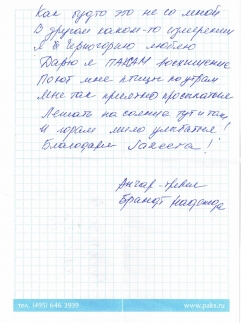 Как будто это не со мной
В другом каком-то измерении
Я в Черногорию люблю
Дарю я ПАКСАМ восхищение
Поют мне птицы по утрам
Мне так приятно просыпаться
Лежать на солнце тут и там
И горам мило улыбаться!
Благодарю
Брандт Надежда
тел. (495) 646 3939 www.paks.ru